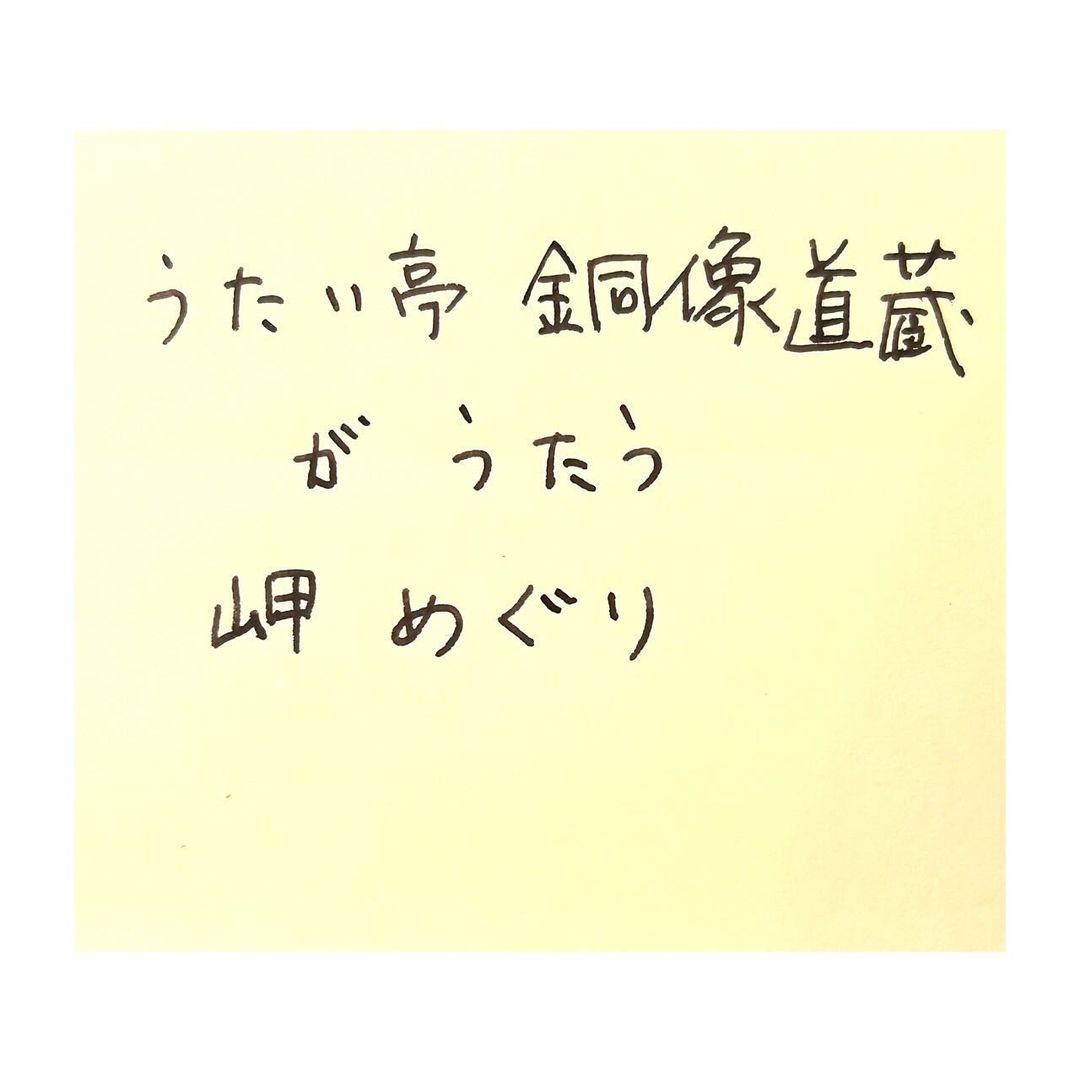 うたい亭 銅像道蔵
が うたう
岬 めぐり